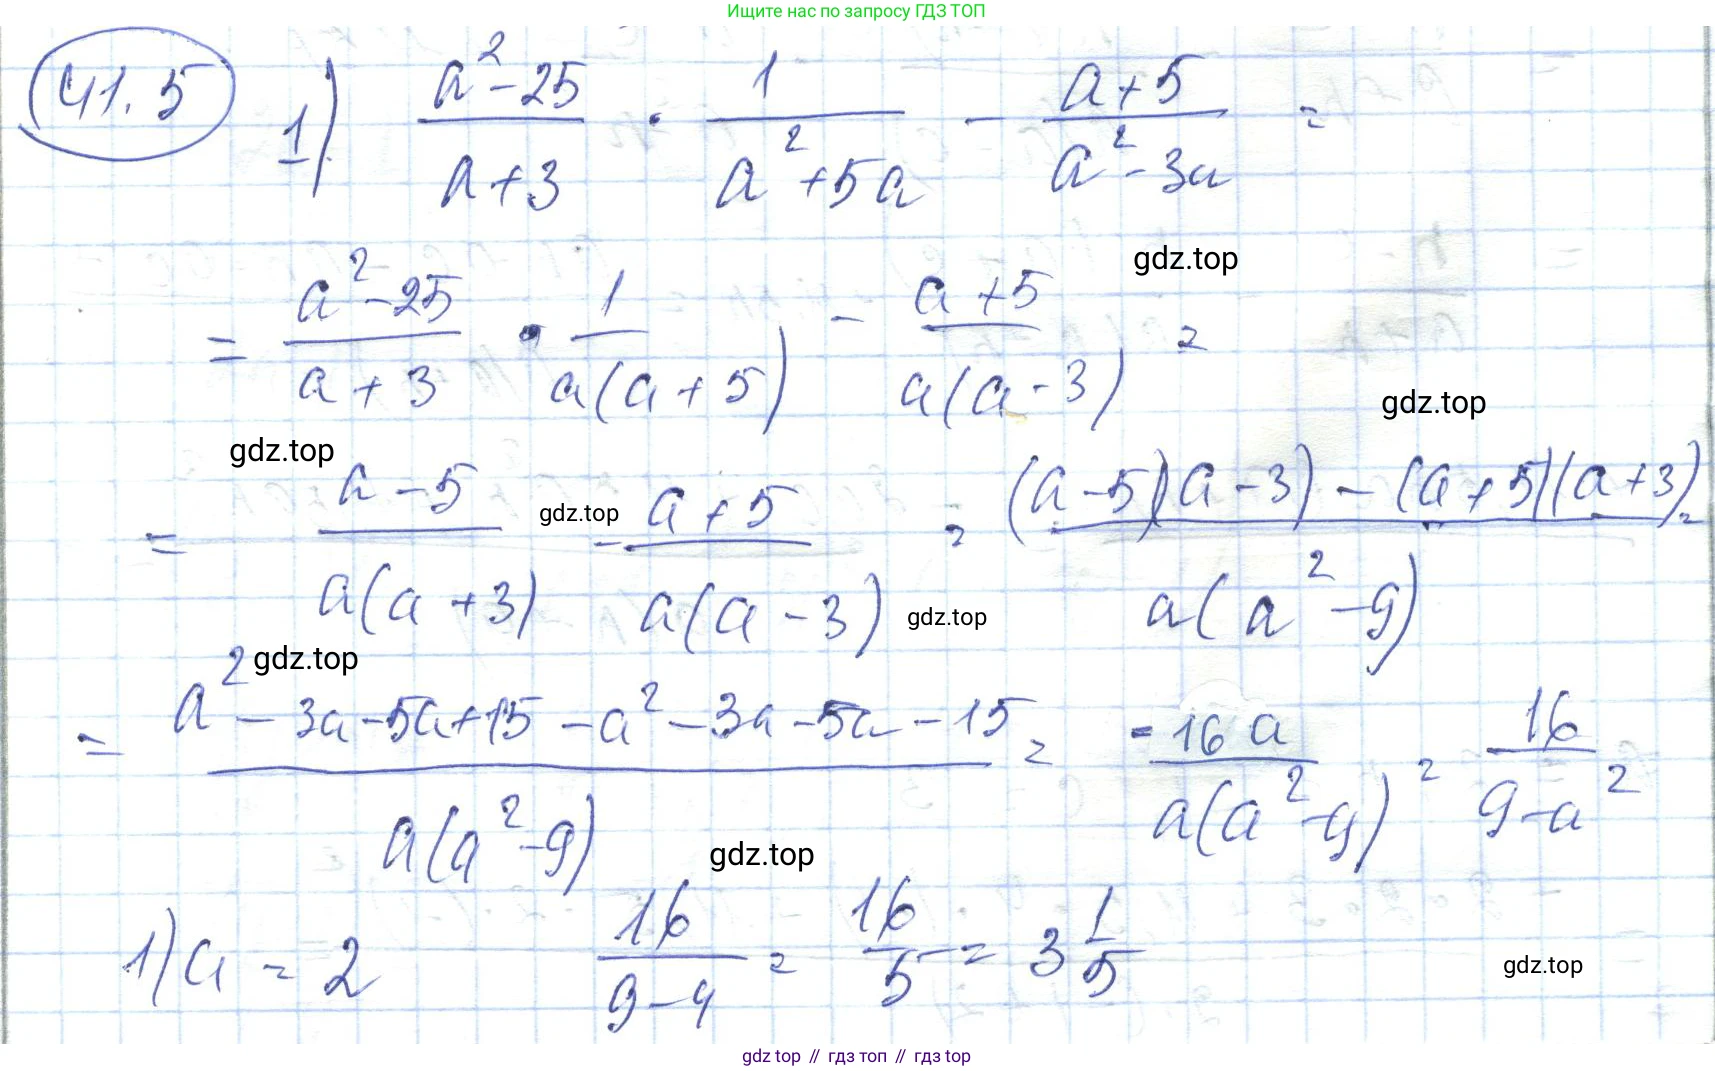 Ищите нас по запросу ГДЗ ТОП
41.5 1) (a²-25)/(a+3) · 1/(a²+5a) - (a+5)/(a²-3a) =
gdz.top
= (a²-25)/(a+3) · 1/(a(a+5)) - (a+5)/(a(a-3)) =
gdz.top
gdz.top
= (a-5)/(a(a+3)) - (a+5)/(a(a-3)) = ((a-5)(a-3) - (a+5)(a+3))/(a(a²-9)) =
gdz.top
gdz.top
gdz.top
= (a²-3a-5a+15-a²-3a-5a-15)/(a(a²-9)) = -16a/(a(a²-9)) = 16/(9-a²)
gdz.top
1) a = 2 16/(9-4) = 16/5 = 3 1/5
gdz.top
gdz top // гдз топ // gdz top